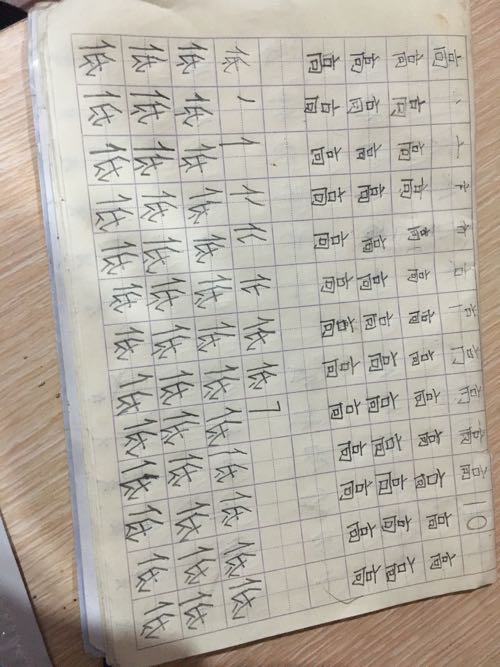 高 丶 亠 高 10
高 高 高 高 高 高 高 高 高 高 高 高 高
高 高 高 高 高 高 高 高 高 高 高 高 高
高 高 高 高 高 高 高 高 高 高 高 高 高
低 丿 亻 低 7
低 低 低 低 低 低 低 低 低 低 低 低 低
低 低 低 低 低 低 低 低 低 低 低 低 低
低 低 低 低 低 低 低 低 低 低 低 低 低